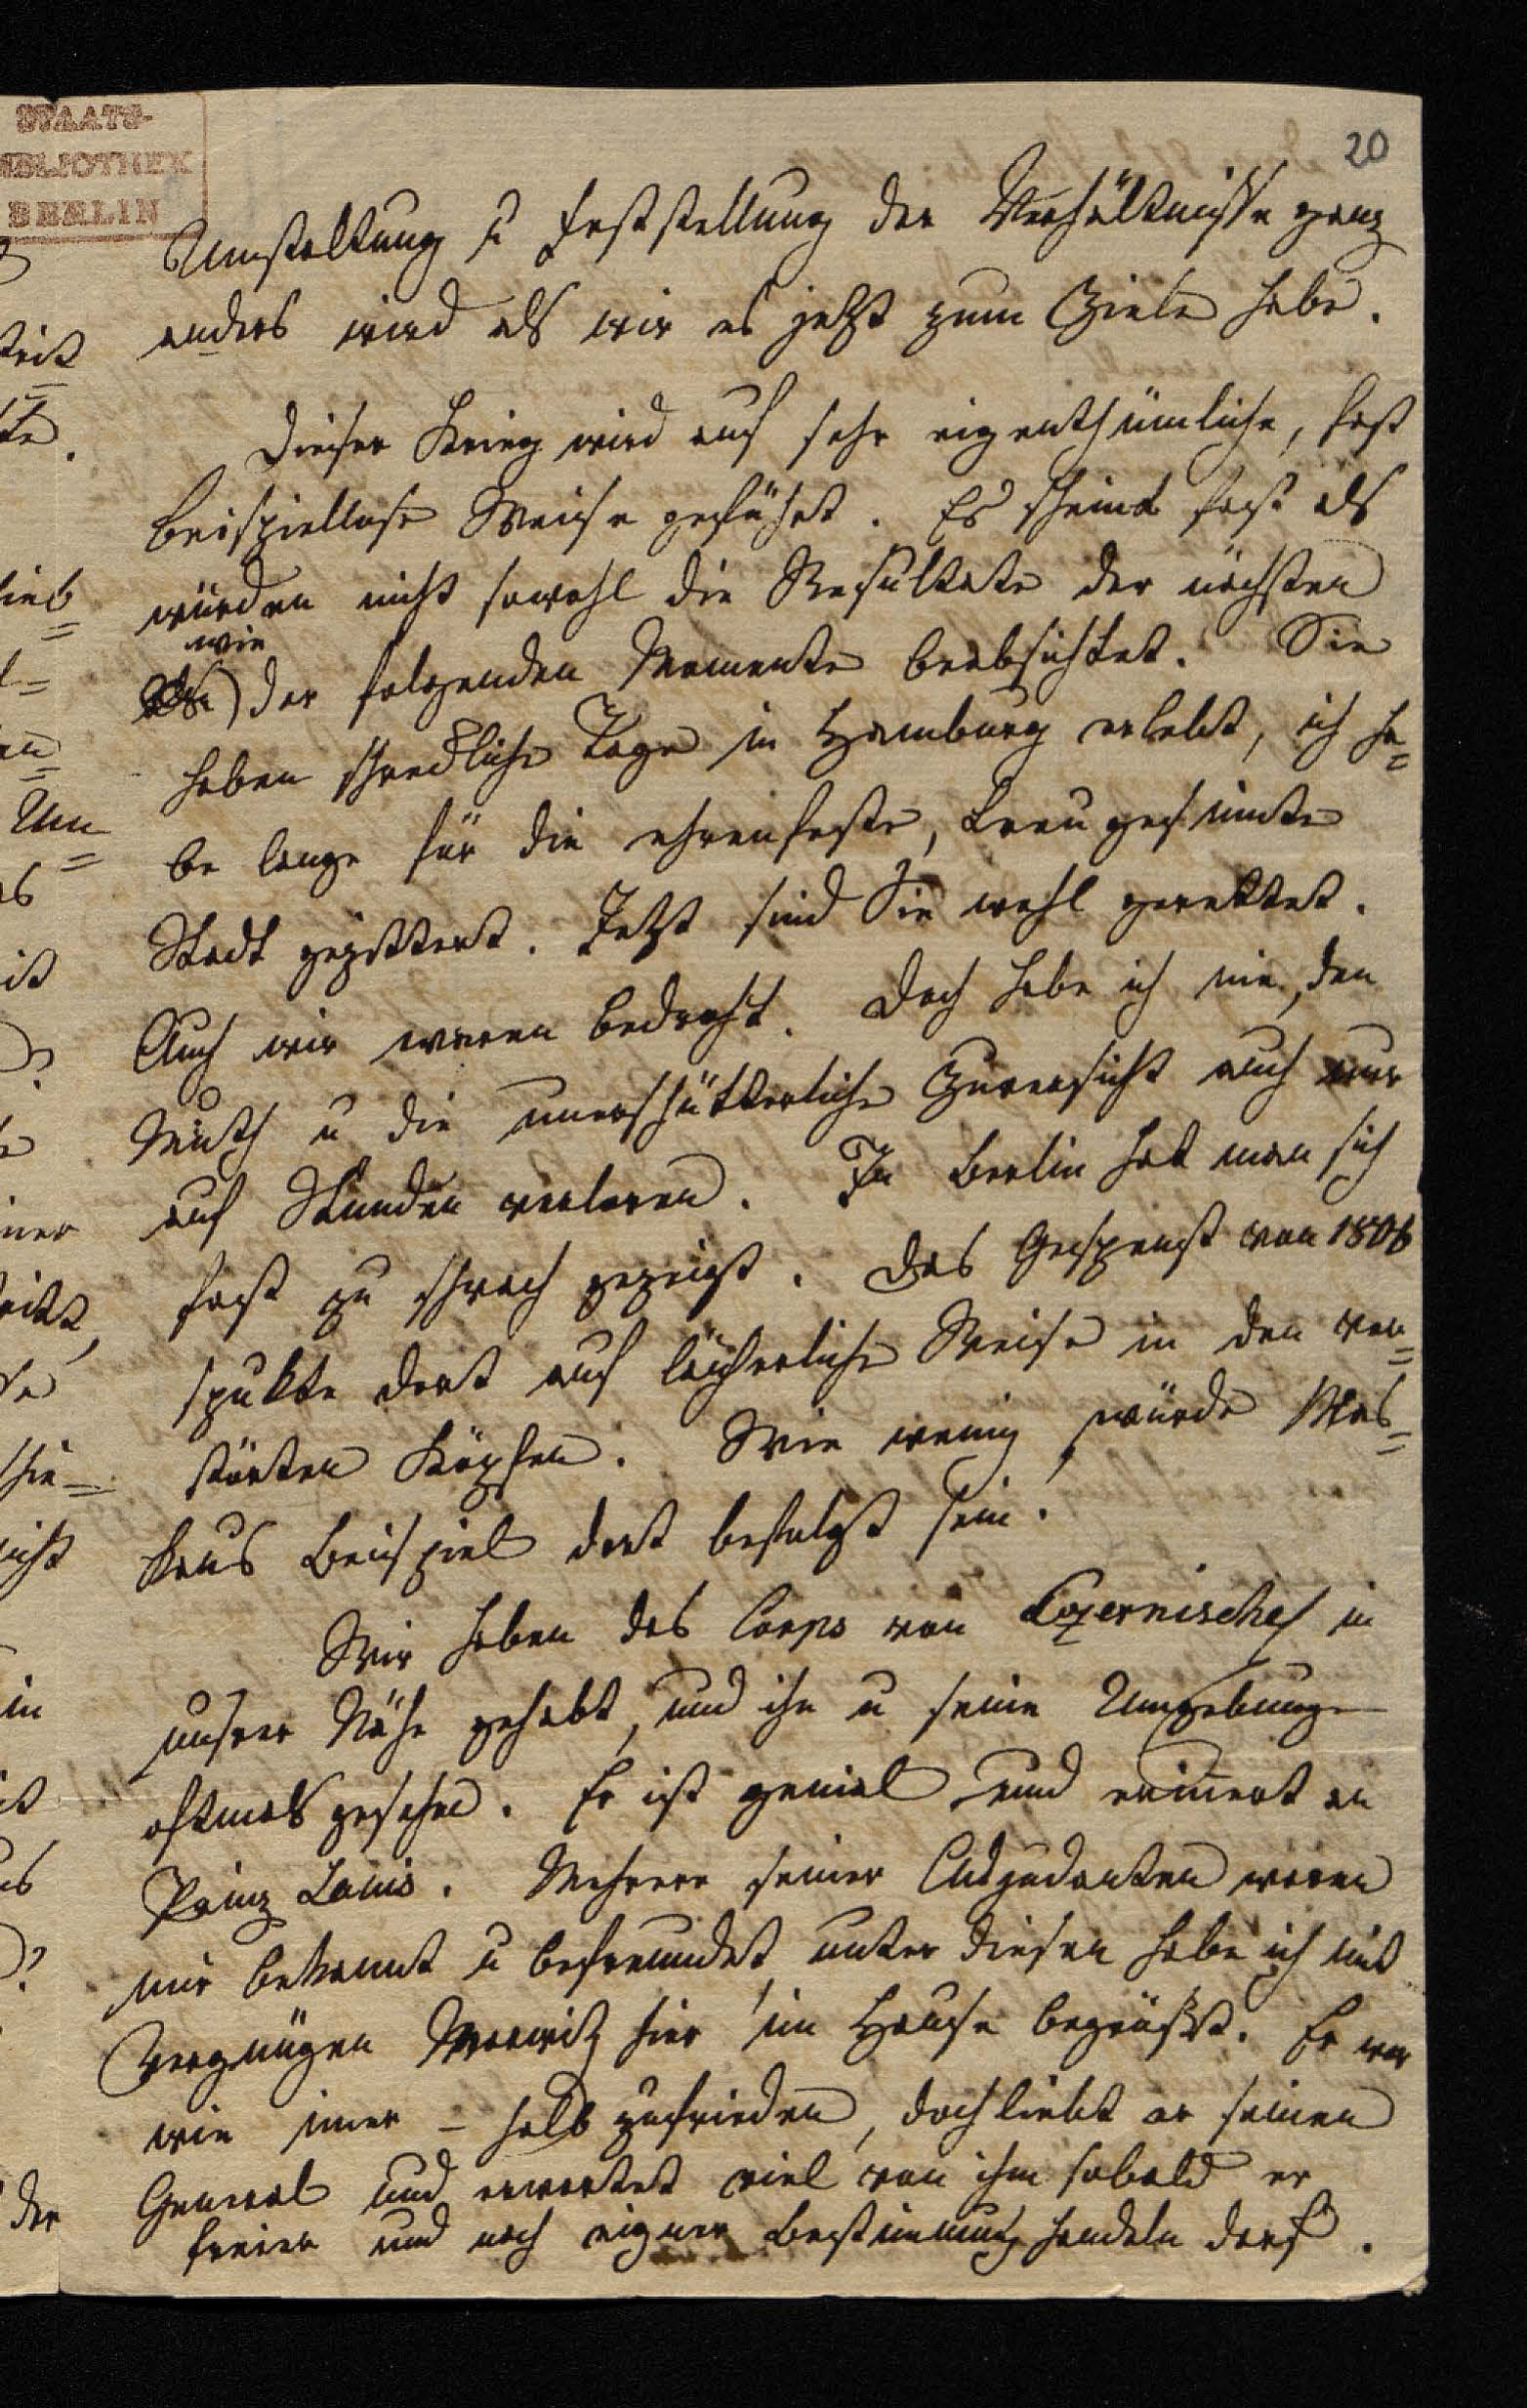 20
STAATS-
BIBLIOTHEK
BERLIN
Umstaltung u Feststellung der Verhältnisse ganz
anders wird als wir es jetzt zum Ziele habe.
Dieser Krieg wird auf sehr eigenthümliche, fast
beispiellose Weise geführt. Es scheint fast als
würden nicht sowohl die Resultate der nächsten
wie
der folgenden Momente beabsichtet. Sie
haben schreckliche Tage in Hamburg erlebt, ich ha=
be lange für die ehrenfeste, treu gesinnte
Stadt gezittert. Jetzt sind Sie wohl gerettet.
Auch wir waren bedroht. Doch habe ich nie, den
Muth u die unerschütterliche Zuversicht auch nur
auf Stunden verloren. In Berlin hat man sich
fast zu schwach gezeigt. Das Gespenst von 1806
spukte dort auf lächerliche Weise in den ver=
störten Köpfen. Wie wenig würde Mos=
kaus Beispiel dort befolgt sein!
Wir haben das Corps von Czernischef in
unsrer Nähe gehabt, und ihn u seine Umgebungen
oftmals gesehen. Er ist genial und erinnert an
Prinz Louis. Mehrere seiner Adjudanten waren
mir bekannt u befreundet, unter diesen habe ich mit
Vergnügen Marwitz hier im Hause begrüßt. Er war
wie immer – halb zufrieden, doch liebt er seinen
General und erwartet viel von ihm sobald er
freier und nach eigner Bestimmung handeln darf.